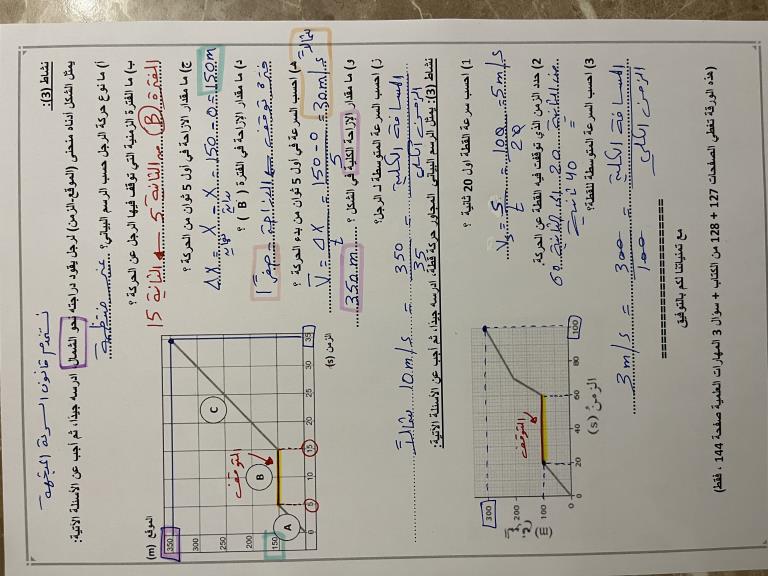 نستخدم قانون السرعة المتجهة
نشاط (3):
يمثل الشكل أدناه منحنى (الموقع-الزمن) لرجل يقود دراجته نحو الشمال ادرسه جيداً، ثم أجب عن الأسئلة الآتية:
أ) ما نوع حركة الرجل حسب الرسم البياني؟ غير منتظمة
ب) ما الفترة الزمنية التي توقف فيها الرجل عن الحركة ؟
الفترة (B) من الثانية 5 ← الثانية 15
ج) ما مقدار الإزاحة في أول 5 ثوان من الحركة ؟
ΔX = X نهاية - X بداية = 150 - 0 = 150 m
د) ما مقدار الإزاحة في الفترة ( B ) ؟
فترة توقف ← الإزاحة = صفر
هـ) احسب السرعة في أول 5 ثوان من بدء الحركة ؟
V = ΔX / t = 150 - 0 / 5 = 30 m/s شمالاً
و) ما مقدار الإزاحة الكلية في الشكل ؟
350 m
ز) احسب السرعة المتوسطة لـ الرجل؟
المسافة الكلية / الزمن الكلي = 350 / 35 = 10 m/s شمالاً
الموقع (m)
350
300
250
200
150
0
5
10
15
20
25
30
35
الزمن (s)
A
B
C
التوقف
نشاط (3): يمثل الرسم البياني المجاور حركة قطة، ادرسه جيداً، ثم أجب عن الأسئلة الآتية:
1) احسب سرعة القطة أول 20 ثانية ؟
Vs = S / t = 100 / 20 = 5 m/s
2) حدد الزمن الذي توقفت فيه القطة عن الحركة.
من الثانية 20 إلى الثانية 60
= 40 ثانية
3) احسب السرعة المتوسطة للقطة؟
المسافة الكلية / الزمن الكلي = 300 / 100 = 3 m/s
300
200
100
0
(m)
0
20
40
60
80
100
الزمن (s)
التوقف
==================
مع تمنياتنا لكم بالتوفيق
(هذه الورقة تغطي الصفحات 127 + 128 من الكتاب + سؤال 3 المهارات العلمية صفحة 144 ، فقط)